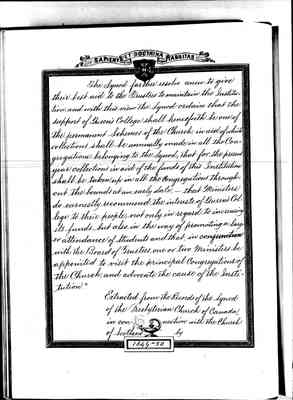 SAPIENTIA ET DOCTRINA STABILITAS
The Synod farther resolve anew to give
their best aid to the Trustees to maintain the Institu-
tion, and with this view the Synod ordain that the
support of Queens College shall henceforth be one of
the permanent Schemes of the Church in aid of which
collections shall be annually made in all the Con-
gregations belonging to the Synod, that for the present
year collections in aid of the funds of this Institution
shall be taken up in all the Congregations through-
out the bounds at an early date, – that Ministers
do earnestly recommend the interests of Queens Col-
lege to their people, not only in regard to increasing
its funds, but also in the way of promoting a larg-
er attendance of Students and that in conjunction
with the Board of Trustees, one or two Ministers be
appointed to visit the principal Congregations of
the Church, and advocate the cause of the Insti-
tution"
Extracted from the Records of the Synod
of the Presbyterian Church of Canada,
in connection with the Church
of Scotland by
1849-50